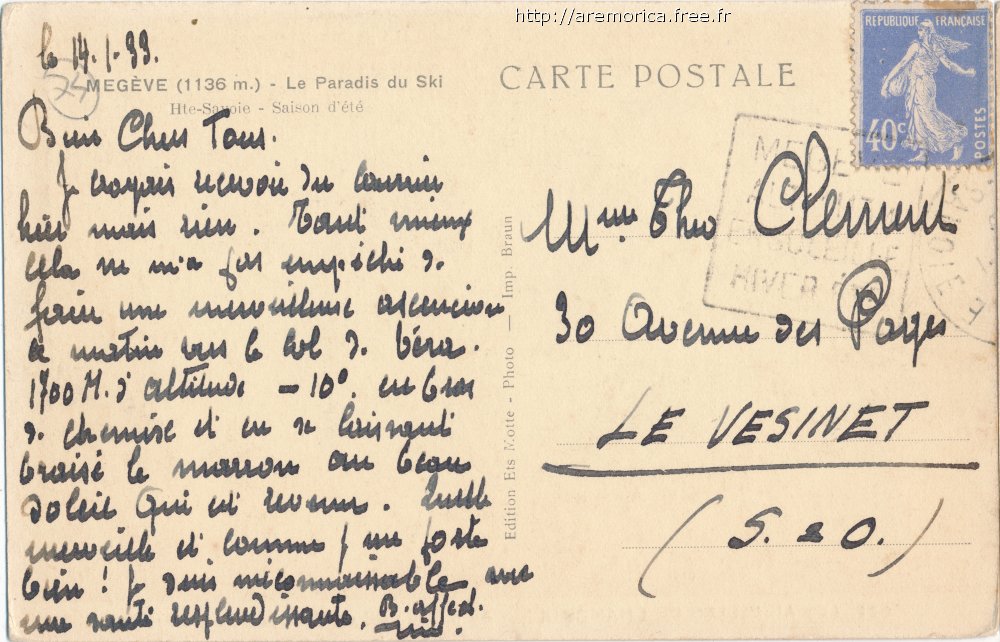 http://aremorica.free.fr
le 14.1.33.
74
MEGÈVE (1136 m.) - Le Paradis du Ski
Hte-Savoie - Saison d'été
Bien Chers Tous.
Je croyais recevoir du courrier
hier mais rien. Tant mieux
cela ne m'a pas empêché de
faire une merveilleuse ascencion
ce matin vers le Col de Véra.
1700 M. d'altitude - 10°. en bras
de chemise et en se laissant
braisé le marron au beau
soleil qui est revenu. Quelle
merveille et comme je me porte
bien! Je suis méconnaissable avec
une santé resplendissante. B. affect.
Edition Ets Motte - Photo — Imp. Braun
CARTE POSTALE
REPUBLIQUE FRANÇAISE
40c
POSTES
MEGEVE
HIVER
Mme Theo Clement
30 Avenue des Pages
LE VESINET
(S. & O.)